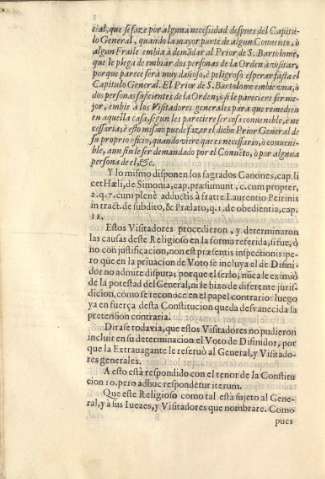 cial, que se faze por alguna necessidad despues del Capitu
lo General, quando la mayor parte de algun Convento, ò
algun Fraile embia à demãdar al Prior de S. Bartolomè,
que le plega de embiar dos personas de la Orden à visitar,
por que parece serà muy dañoso, è peligroso esperar fasta el
Capitulo General. El Prior de S. Bartolome embie una, ò
dos personas suficientes de la Orden; ò si le pareciere ser me-
jor, embie à los Visitadores generales para que remedien
en aquella casa, segun les pareciere ser cosa convenible, è ne
cessaria; è esto mismo puede fazer el dicho Prior General de
su proprio oficio, quando viere que es necessario, ò conveni-
ble, aun sin le ser demandado por el Convẽto, ò por alguna
persona de el, &c.
Y lo mismo disponen los sagrados Canones, cap. li
cet Hæli, de Simonia, cap. præsumunt, c. cum propter,
2. q. 7. cum plenè adductis à fratre Laurentio Peirinis
in tract. de subdito, & Prælato, q. 1. de obedientia, cap.
12.
Estos Visitadores procedieron, y determinaron
las causas deste Religioso en la forma referida, si fue, ò
no con justificacion, non est præsentis inspectionis: pe-
ro que en la privacion de Voto se incluya el de Difini-
dor no admite disputa; porque el serlo, nũca le eximiò
de la potestad del General, ni le hizo de diferente juris-
dicion, como se reconoce en el papel contrario: luego
ya en fuerça desta Constitucion queda desvanecida la
pretension contraria.
Dirase todavia, que estos Visitadores no pudieron
incluir en su determinacion el Voto de Difinidor, por
que la Extravagante le reservò al General, y Visitado-
res generales.
A esto està respondido con el tenor de la Constitu
cion 10. pero adhuc respondetur iterum.
Que este Religioso como tal està sujeto al Gene-
ral, y à sus Iuezes, y Visitadores que nombrare. Como
pues